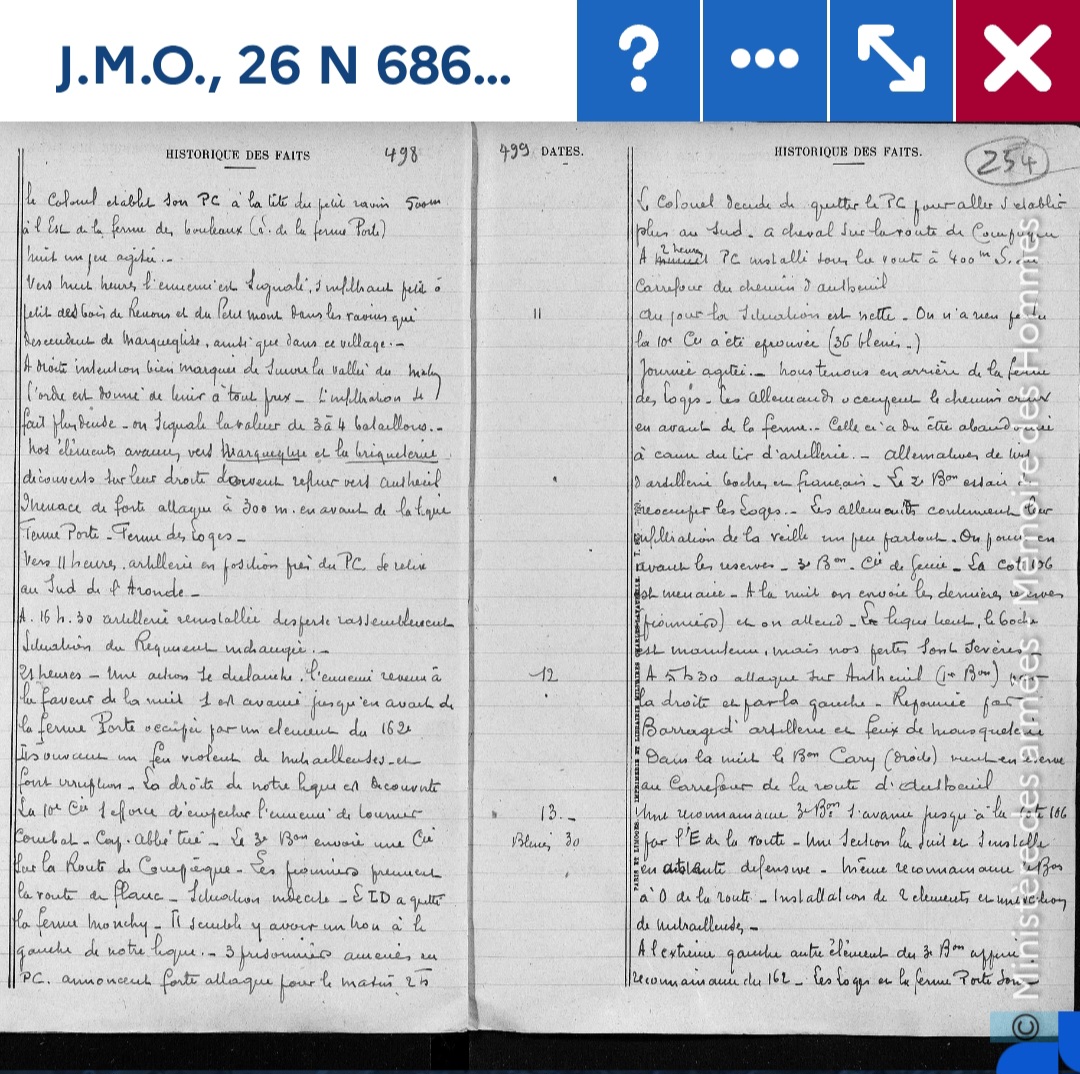 J.M.O., 26 N 686...
HISTORIQUE DES FAITS 498
le Colonel établit son PC à la tête du petit ravin 500m
à l'Est de la ferme des bouleaux (S. de la ferme Porte)
Nuit un peu agitée. -
Vers huit heures l'ennemi est signalé, s'infiltrant petit à
petit des bois de Ressons et du Petit mont dans les ravins qui
descendent de Marqueglise, ainsi que dans ce village. -
A droite intention bien marquée de suivre la vallée du Matz
l'ordre est donné de tenir à tout prix - L'infiltration se
fait plus dense - on signale la valeur de 3 à 4 bataillons. -
Nos éléments avancés vers Marqueglise et la briqueterie
découverts sur leur droite doivent refluer vert Antheuil
Menace de forte attaque à 300 m. en avant de la ligne
Ferme Porte - Ferme des Loges -
Vers 11 heures, artillerie en position près du PC se retire
au Sud de l'Aronde -
A. 16 h. 30 artillerie réinstallée disperse rassemblement
Situation du Régiment inchangée. -
21 heures - Une action se déclanche, l'ennemi
la faveur de la nuit s'est avancé jusqu'en avant de
la ferme Porte occupée par un élément du 162e
Ils ouvrent un feu violent de mitrailleuses - et
font irruption - La droite de notre ligne est découverte
La 10e Cie s'efforce d'empêcher l'ennemi de tourner
Combat - Cap. Abbé tué - Le 3e Bon envoie une Cie
sur la Route de Compiègne - Les pionniers prennent
la route en flanc - Situation indécise - L'ID a quitté
la ferme Monchy - Il semble y avoir un trou à la
gauche de notre ligne. - 3 prisonniers amenés au
PC. annoncent forte attaque pour le matin 2h
499 DATES.
11
12
13. -
Blessés 30
HISTORIQUE DES FAITS.
254
Le Colonel décide de quitter le PC pour aller s'établir
plus au Sud - à cheval sur la route de Compiègne
A 2 heures PC installé sous la route à 400m S. du
Carrefour du chemin d'Antheuil
Au jour la situation est nette - On n'a rien perdu
la 10e Cie a été éprouvée (36 blessés -)
Journée agitée. - Nous tenons en arrière de la ferme
des Loges - Les Allemands occupent le chemin creux
en avant de la ferme. - Celle ci a du être abandonnée
à cause du tir d'artillerie. - Alternatives de tirs
d'artillerie boches et français - Le 2e Bon essaie de
réoccuper les Loges. - Les allemands continuent leur
infiltration de la veille un peu partout. On pousse en
avant les réserves - 3e Bon. Cie de Génie - La cote 106
est menacée - A la nuit on envoie les dernières réserves
(pionniers) et on attend - La ligne tient, le boche
est maintenu, mais nos pertes sont sévères -
A 5h30 attaque sur Antheuil (1er Bon) par
la droite et par la gauche - Repoussée par
Barrage d'artillerie et feux de mousqueterie
Dans la nuit le Bon Cary (droite) vient en réserve
au Carrefour de la route d'Antheuil
Une reconnaissance 3e Bon s'avance jusqu'à la cote 106
par l'E de la route - Une Section la suit et s'installe
en attitude défensive - Même reconnaissance
à O de la route - Installation de 2 éléments et une section
de mitrailleuses -
A l'extrême gauche autre élément du 3e Bon appuie
reconnaissance du 162 - Les Loges et la ferme Porte sont
PARIS ET LIMOGES. - IMPRIMERIE ET LIBRAIRIE MILITAIRES CHARLES-LAVAUZELLE.
© Ministère des armées - Mémoire des Hommes